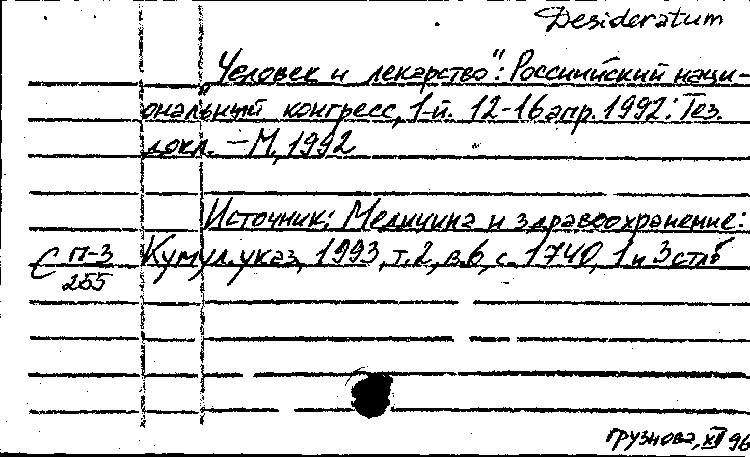 Desideratum
„Человек и лекарство“: Российский наци-
ональный конгресс, 1-й. 12-16 апр. 1992: Тез.
докл. – М., 1992
Источник: Медицина и здравоохранение:
С П-3 Кумул. указ, 1993, т.2, в.6, с. 1740, 1 и 3 стлб
255
Грузнова, XII 96